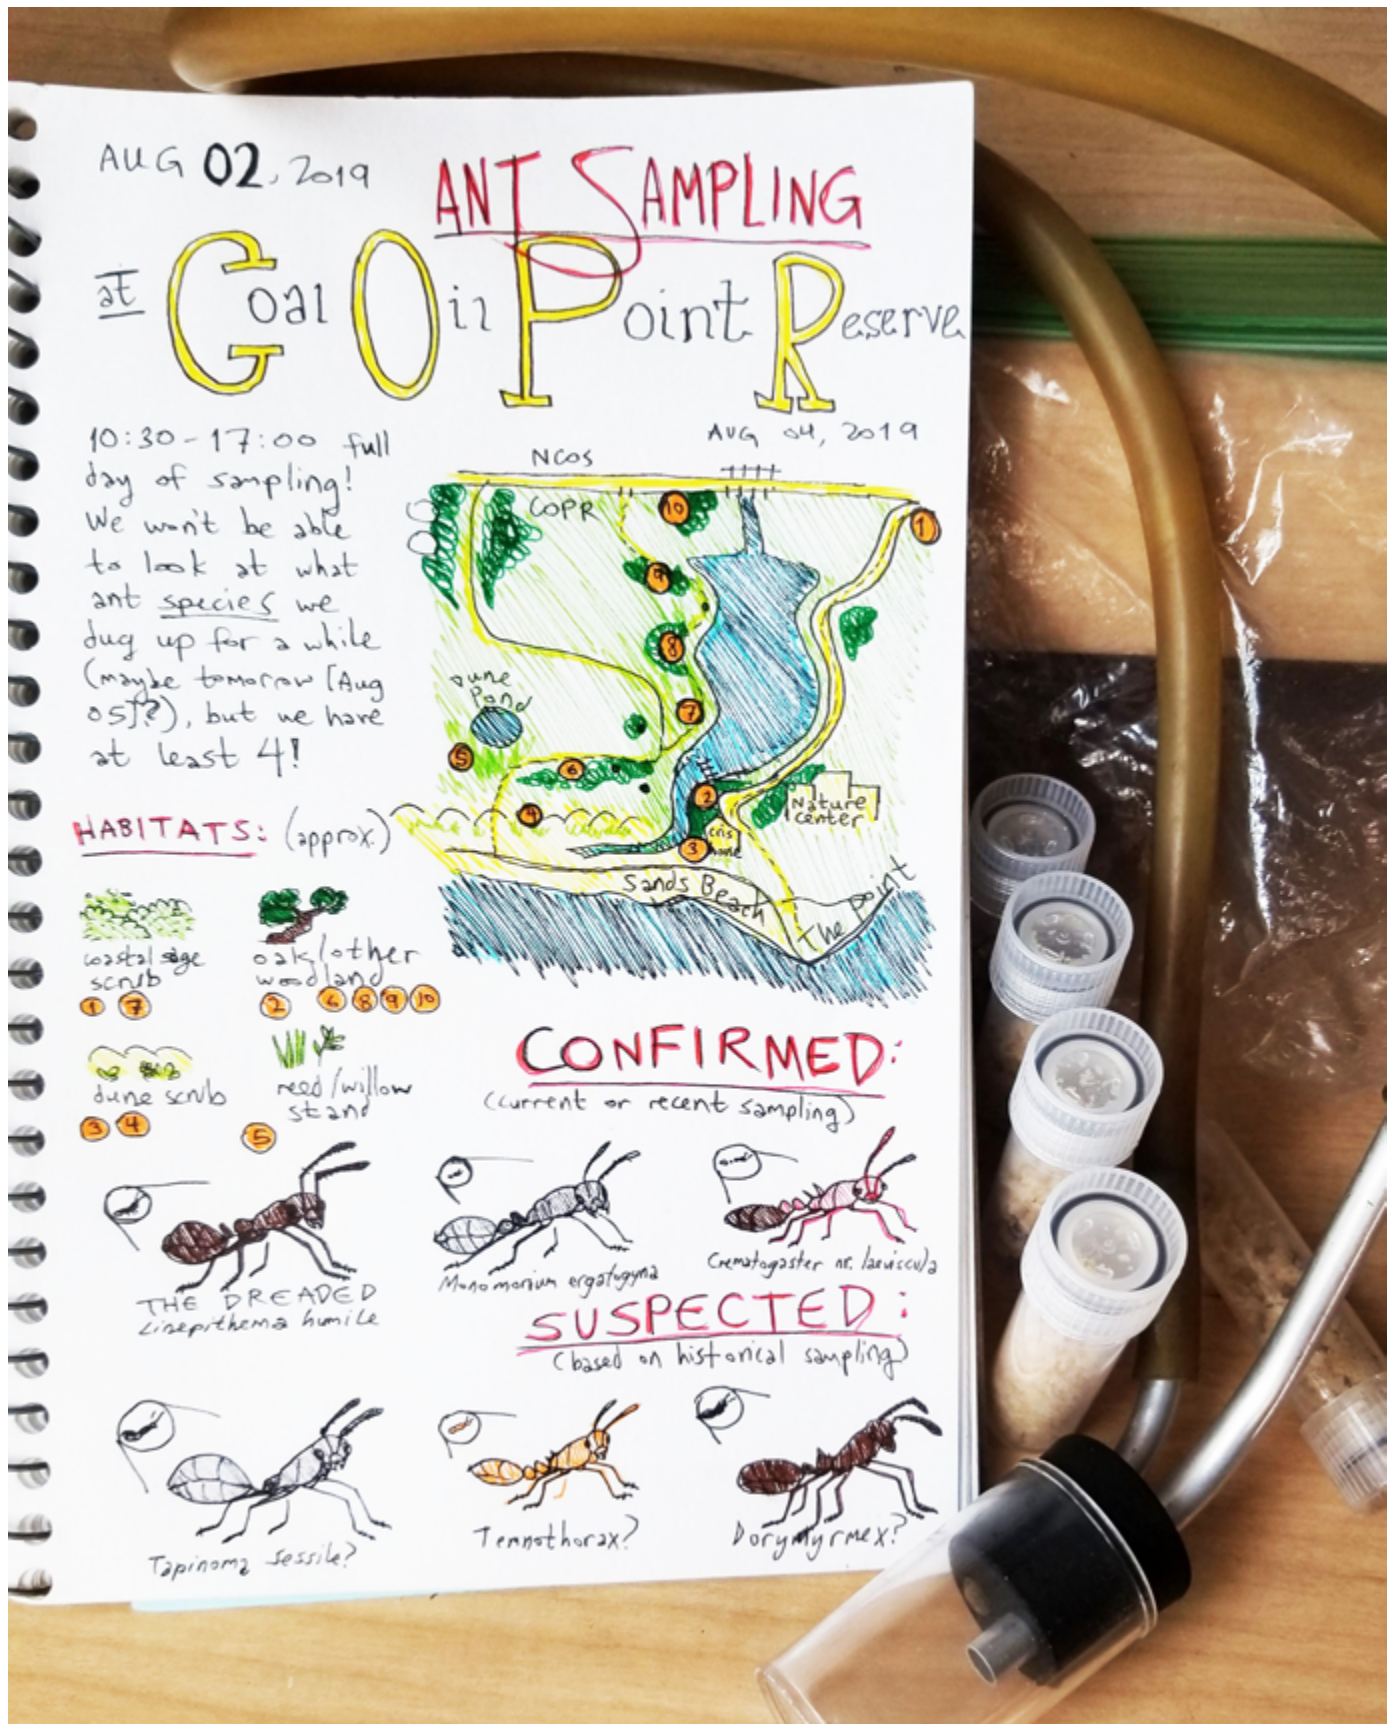 AUG 02, 2019
ANT SAMPLING
at Coal Oil Point Reserve
10:30-17:00 full
day of sampling!
We won't be able
to look at what
ant species we
dug up for a while
(maybe tomorrow [Aug
05]?), but we have
at least 4!
AUG 04, 2019
NCOS
COPR
10
1
9
8
7
Dune
Pond
5
6
4
2
Nature
center
3
cris
home
Sands Beach
The point
HABITATS: (approx.)
coastal sage
scrub
1 7
oak/other
woodland
2 6 8 9 10
dune scrub
3 4
reed/willow
stand
5
CONFIRMED:
(current or recent sampling)
THE DREADED
Linepithema humile
Monomorium ergatogyna
Crematogaster nr. laeviscula
SUSPECTED:
(based on historical sampling)
Tapinoma sessile?
Temnothorax?
Dorymyrmex?